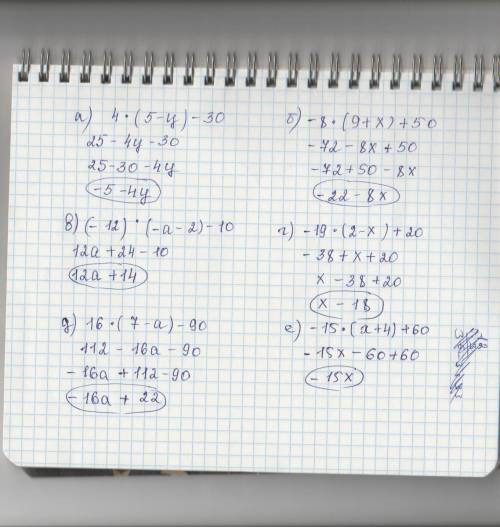 а) 4 · (5-y) - 30
25 - 4y - 30
25 - 30 - 4y
-5 - 4y
б) -8 · (9+x) + 50
-72 - 8x + 50
-72 + 50 - 8x
-22 - 8x
в) (-12) · (-a-2) - 10
12a + 24 - 10
12a + 14
г) -19 · (2-x) + 20
-38 + x + 20
x - 38 + 20
x - 18
д) 16 · (7-a) - 90
112 - 16a - 90
-16a + 112 - 90
-16a + 22
е) -15 · (x+4) + 60
-15x - 60 + 60
-15x